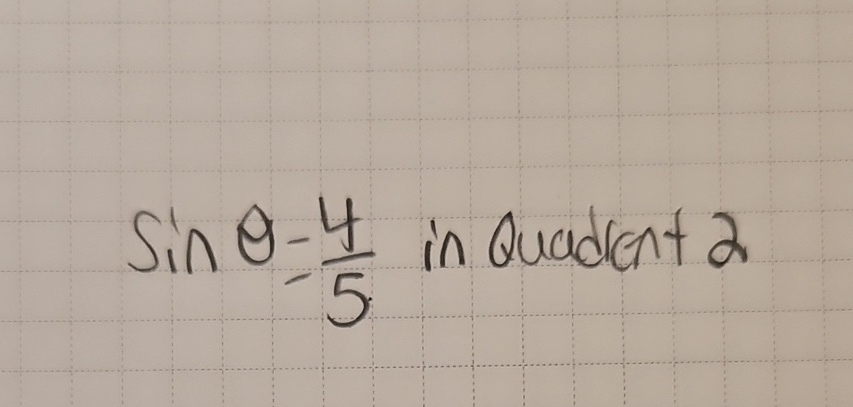 Sin θ = 4/5 in Quadrent 2